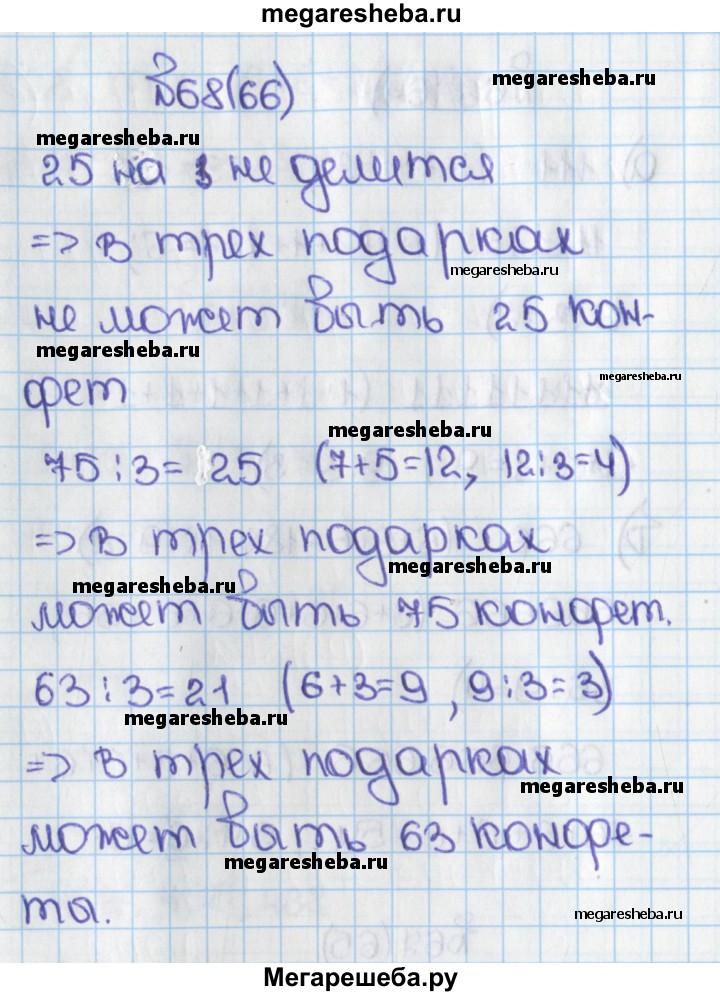 megaresheba.ru
№68(66)
megaresheba.ru
megaresheba.ru
25 на 3 не делится
=> в трех подарках
megaresheba.ru
не может быть 25 кон-
megaresheba.ru
megaresheba.ru
фет
megaresheba.ru
75:3= 25 (7+5=12, 12:3=4)
=> в трех подарках
megaresheba.ru
megaresheba.ru
может быть 75 конфет.
63:3=21 (6+3=9, 9:3=3)
megaresheba.ru
=> в трех подарках
megaresheba.ru
может быть 63 конфе-
megaresheba.ru
ты.
megaresheba.ru
Мегарешеба.ру